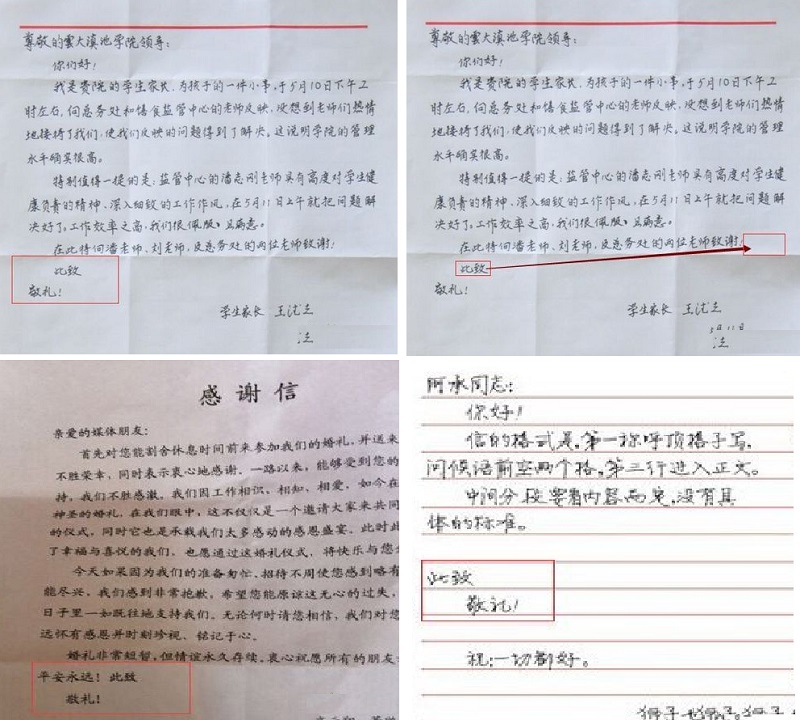 尊敬的雲大滇池学院领导：
你们好！
我是贵院的学生家长，为孩子的一件小事，于5月10日下午2
时左右，向总务处和膳食监管中心的老师反映，没想到老师们热情
地接待了我们，使我们反映的问题得到了解决，这说明学院的管理
水平确实很高。
特别值得一提的是：监管中心的潘志刚老师具有高度对学生健
康负责的精神，深入细致的工作作风，在5月11日上午就把问题解
决好了，工作效率之高，我们很佩服，且满意。
在此特向潘老师、刘老师，及总务处的两位老师致谢！
此致
敬礼！
学生家长 王
尊敬的雲大滇池学院领导：
你们好！
我是贵院的学生家长，为孩子的一件小事，于5月10日下午2
时左右，向总务处和膳食监管中心的老师反映，没想到老师们热情
地接待了我们，使我们反映的问题得到了解决，这说明学院的管理
水平确实很高。
特别值得一提的是：监管中心的潘志刚老师具有高度对学生健
康负责的精神，深入细致的工作作风，在5月11日上午就把问题解
决好了，工作效率之高，我们很佩服，且满意。
在此特向潘老师、刘老师，及总务处的两位老师致谢！
此致
敬礼！
学生家长 王
5月11日
感谢信
亲爱的媒体朋友：
首先对您能割舍休息时间前来参加我们的婚礼，并送来
不胜荣幸，同时表示衷心地感谢。一路以来，能够受到您的
持，我们不胜感激。我们因工作相识、相知、相爱，如今在
神圣的婚礼。在我们眼中，这不仅仅是一个邀请大家来共同
的仪式，同时它也是承载我们太多感动的感恩盛宴。此时此
了幸福与喜悦的我们，也愿通过这婚礼仪式，将快乐与您
今天如果因为我们的准备匆忙、招待不周使您感到略有
能尽兴，我们感到非常抱歉，希望您能原谅这无心的过失，
日子里一如既往地支持我们。无论何时请您相信，我们对您
远怀有感恩并时刻珍视、铭记于心。
婚礼非常短暂，但情谊永久存续。衷心祝愿所有的朋友
平安永远！此致
敬礼！
阿承同志：
你好！
信的格式是，第一称呼顶格子写，
问候语前空两个格，第三行进入正文。
中间分段要看内容而定，没有具
体的标准。
此致
敬礼！
祝：一切都好。